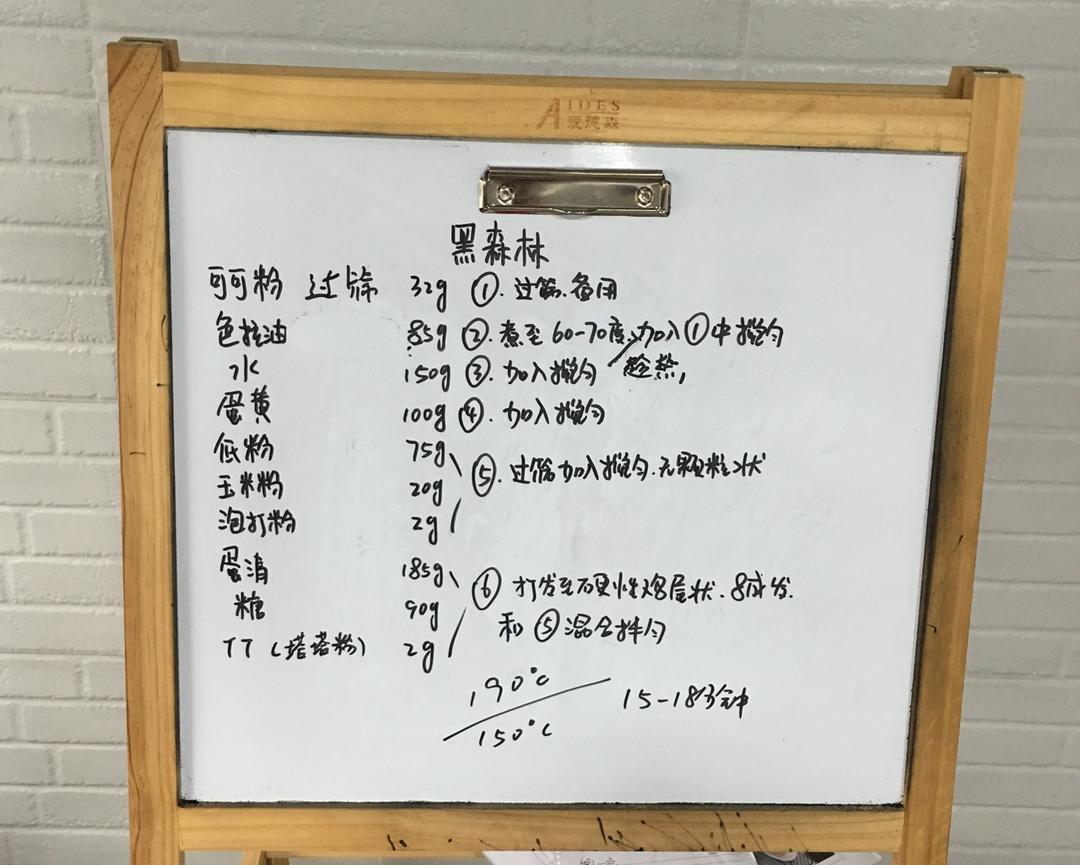 AIDES
爱德森
黑森林
可可粉 过筛 32g ①. 过筛. 备用
色拉油 85g ②. 煮至60-70度, 加入①中搅匀
趁热,
水 150g ③. 加入搅匀
蛋黄 100g ④. 加入搅匀
低粉 75g
玉米粉 20g ⑤. 过筛加入搅匀. 无颗粒状
泡打粉 2g
蛋清 185g
糖 90g ⑥ 打发至硬性鸡尾状. 8成发.
和⑤混合拌匀
TT (塔塔粉) 2g
190°C
150°C
15-18分钟